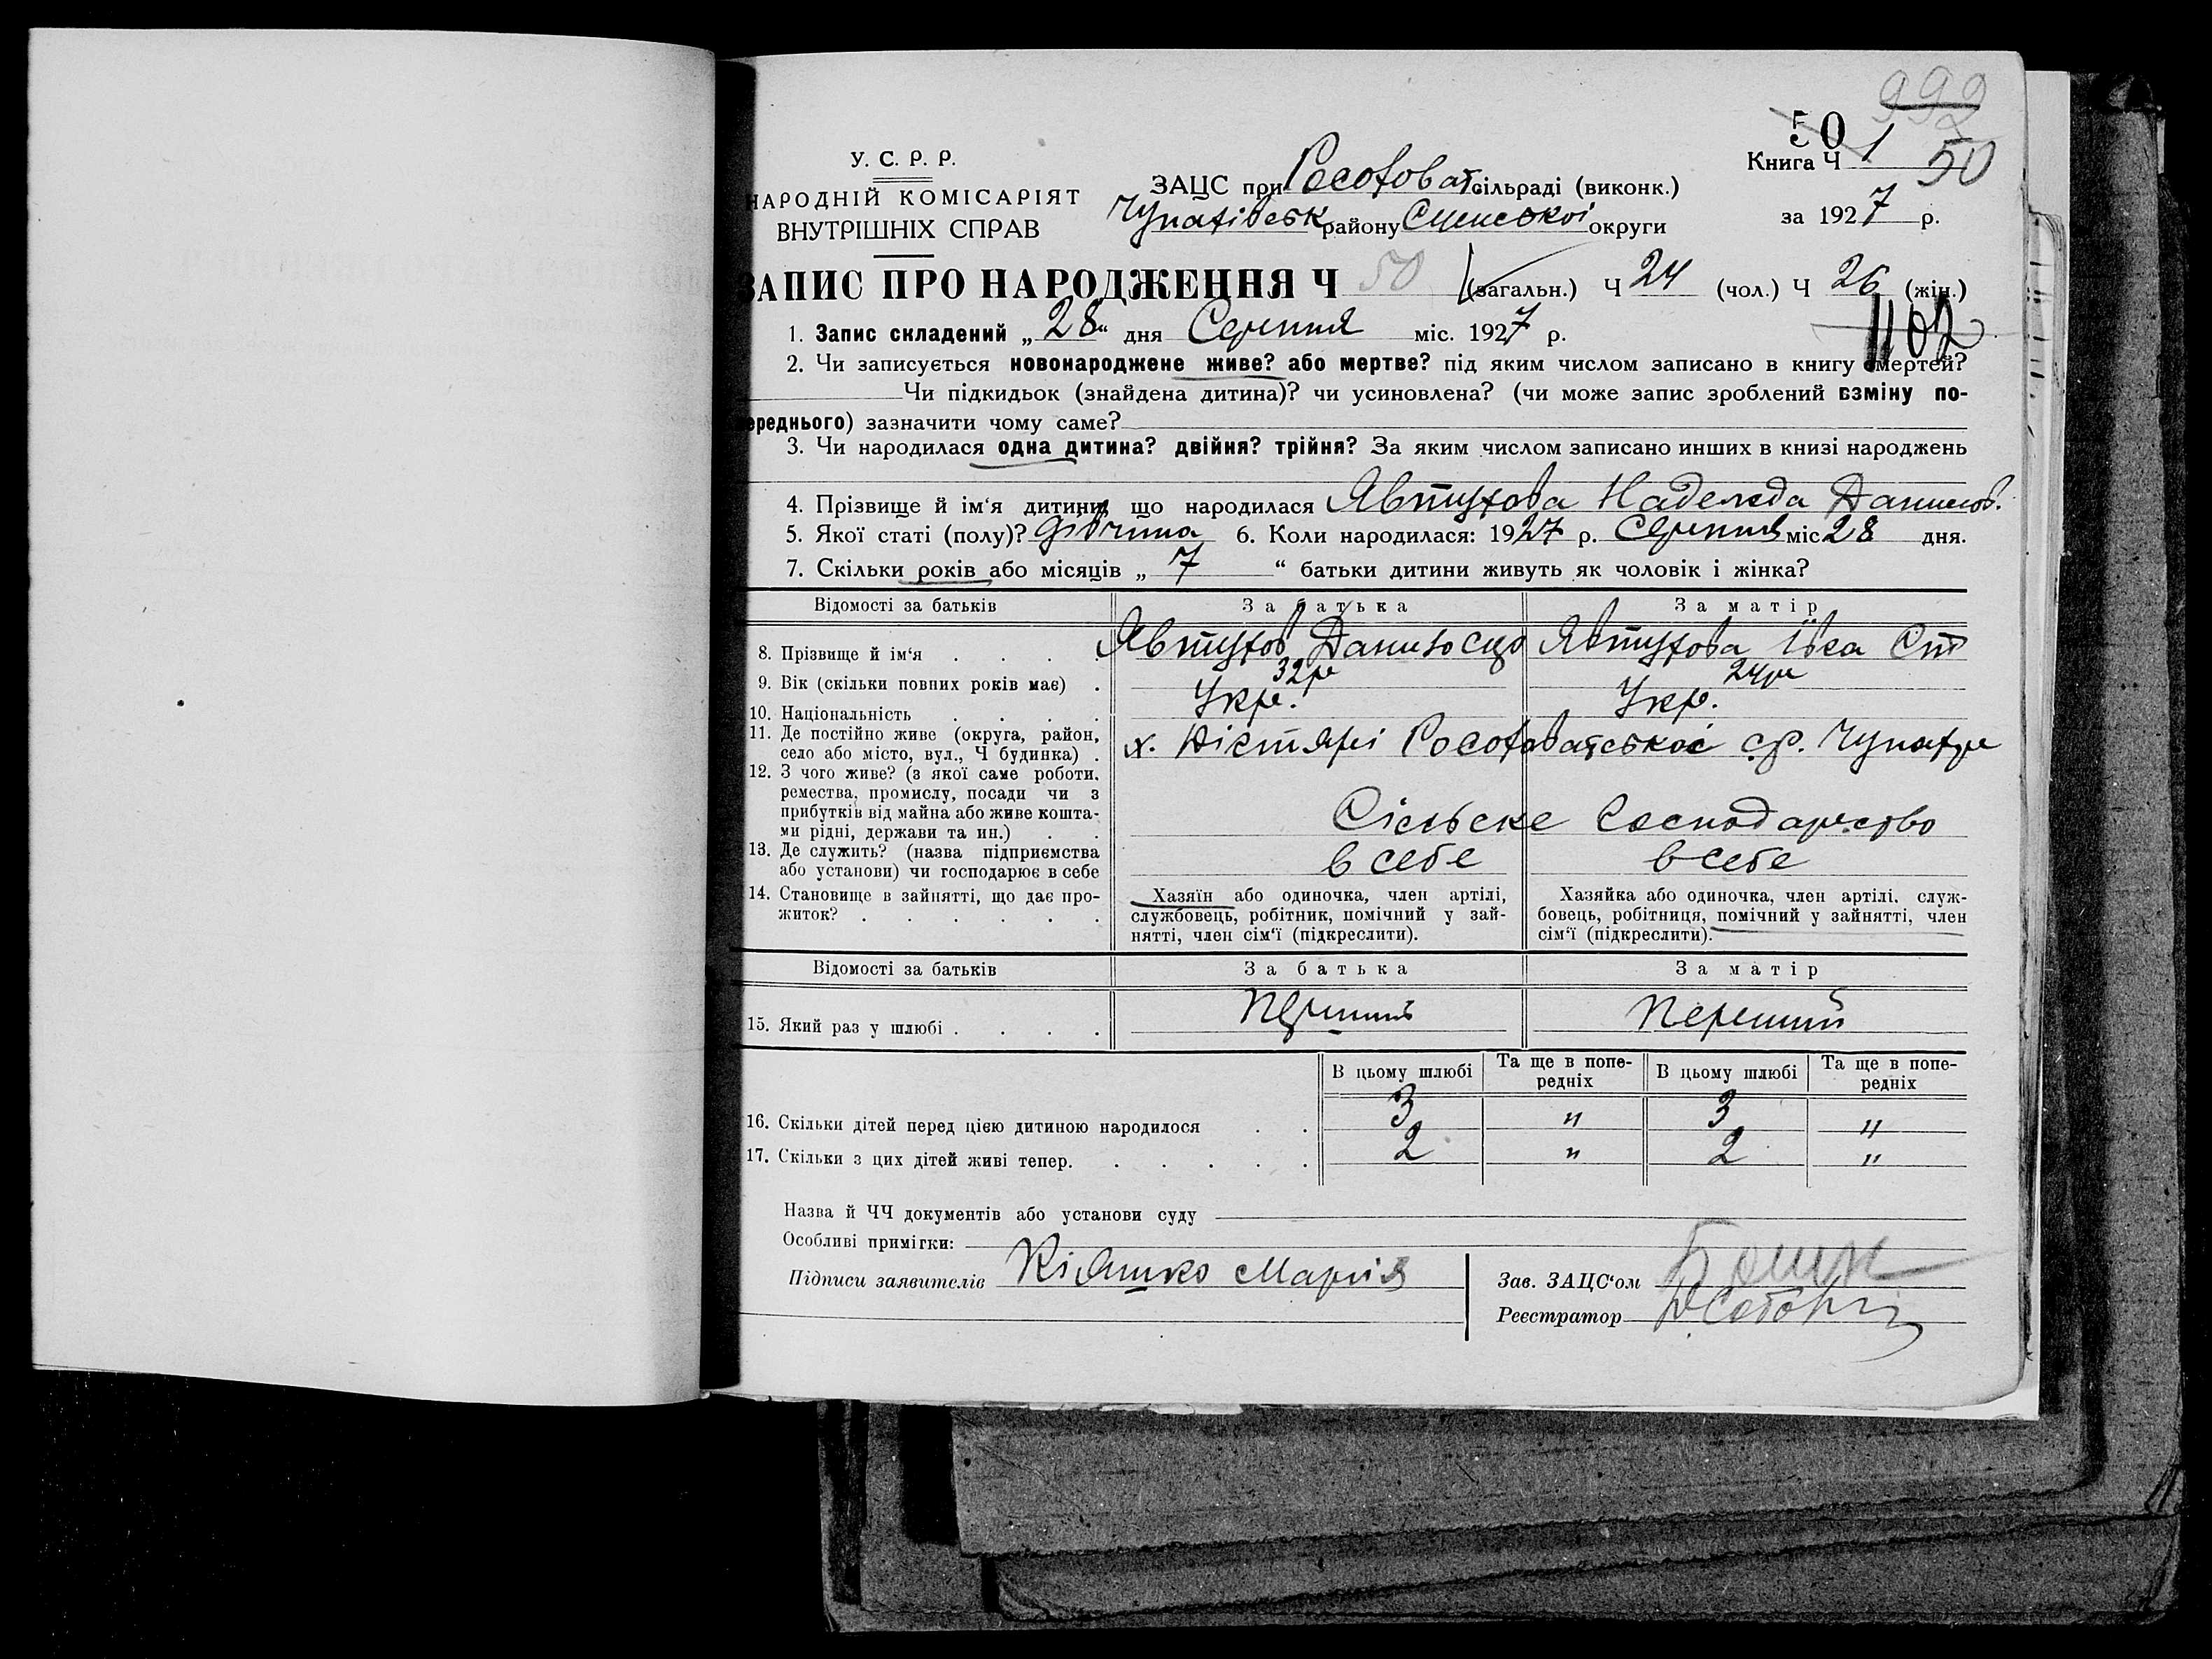 992
50
Книга Ч 1 50
за 1927 р.
У. С. Р. Р.
НАРОДНІЙ КОМІСАРІЯТ
ВНУТРІШНІХ СПРАВ
ЗАЦС при Рософоват сільраді (виконк.)
району Сумської округи
ЗАПИС ПРО НАРОДЖЕННЯ Ч 50 (загальн.) Ч 24 (чол.) Ч 26 (жін.)
1102
1. Запис складений „28“ дня Серпня міс. 1927 р.
2. Чи записується новонароджене живе? або мертве? під яким числом записано в книгу смертей?
Чи підкидьок (знайдена дитина)? чи усиновлена? (чи може запис зроблений взміну по-
ереднього) зазначити чому саме?
3. Чи народилася одна дитина? двійня? трійня? За яким числом записано инших в книзі народжень
4. Прізвище й ім'я дитини, що народилася Явтухова Надежда Данилов.
5. Якої статі (полу)? дівчина 6. Коли народилася: 1927 р. Серпня міс 28 дня.
7. Скільки років або місяців „ 7 “ батьки дитини живуть як чоловік і жінка?
Відомості за батьків За батька За матір
8. Прізвище й ім'я . . . . Явтухов Данило Явтухова Івка Ст
9. Вік (скільки повних років має) . 32 р 24 р
10. Національність . . . . Укр. Укр.
11. Де постійно живе (округа, район,
село або місто, вул., Ч будинка) . х. Дігтярі Рософоватської с/р.
12. З чого живе? (з якої саме роботи,
ремества, промислу, посади чи з
прибутків від майна або живе кошта-
ми рідні, держави та ин.) . . Сільське Господарство
13. Де служить? (назва підприємства
або установи) чи господарює в себе в себе в себе
14. Становище в зайнятті, що дає про-
житок? . . . . . .
Хазяїн або одиночка, член артілі,
службовець, робітник, помічний у зай-
нятті, член сім'ї (підкреслити).
Хазяйка або одиночка, член артілі, служ-
бовець, робітниця, помічний у зайнятті, член
сім'ї (підкреслити).
Відомості за батьків За батька За матір
15. Який раз у шлюбі . . . . Перший Перший
В цьому шлюбі Та ще в попе-
редніх В цьому шлюбі Та ще в попе-
редніх
16. Скільки дітей перед цією дитиною народилося . . 3 " 3 "
17. Скільки з цих дітей живі тепер. . . . . . 2 " 2 "
Назва й ЧЧ документів або установи суду
Особливі примітки:
Підписи заявителів Кіяшко Марія
Зав. ЗАЦС'ом
Реєстратор